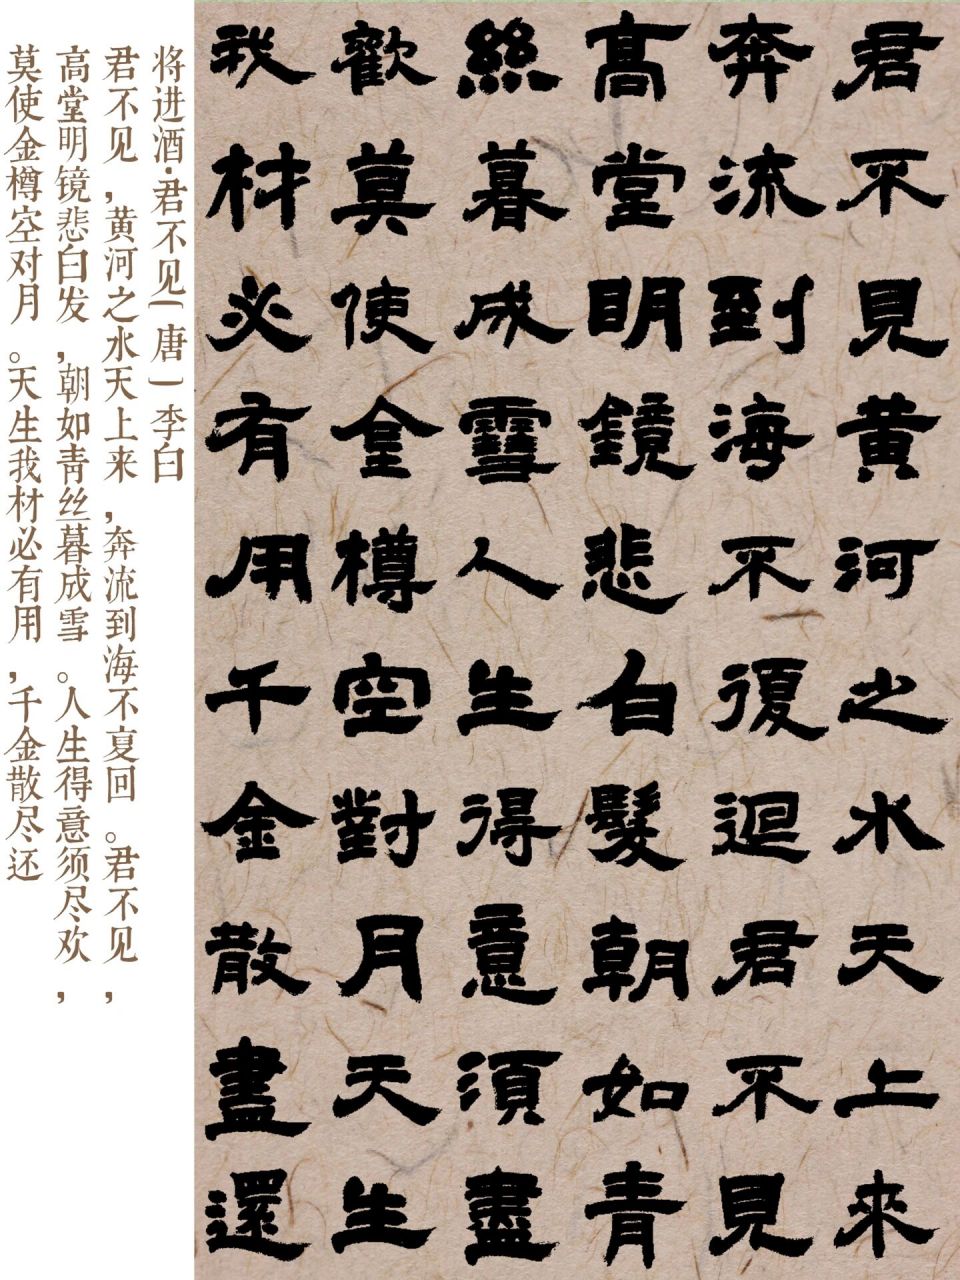 君不見黃河之水天上來
奔流到海不復迴君不見
高堂明鏡悲白髮朝如青
絲暮成雪人生得意須盡
歡莫使金樽空對月天生
我材必有用千金散盡還
将进酒·君不见(唐)李白
君不见,黄河之水天上来,奔流到海不复回。君不见,
高堂明镜悲白发,朝如青丝暮成雪。人生得意须尽欢,
莫使金樽空对月。天生我材必有用,千金散尽还